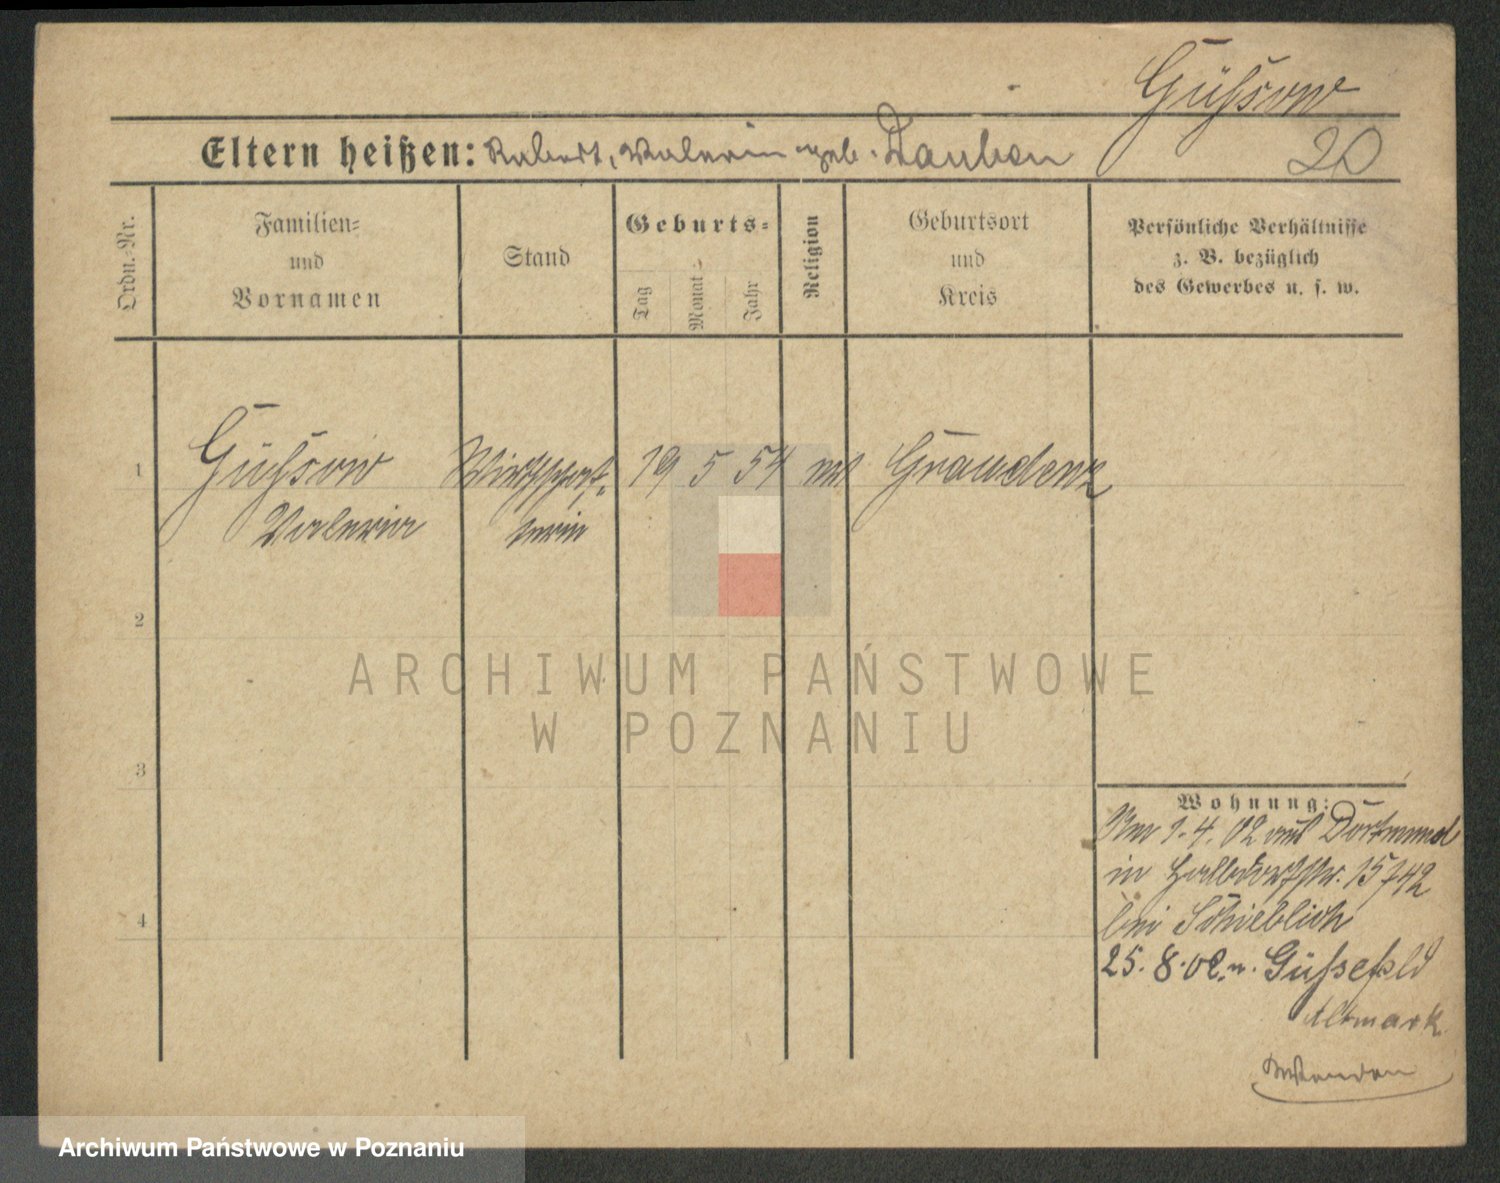 Güßsow
20
Eltern heißen: Robert, Valeria geb. Dauben
Ordn.-Nr.
Familien-
und
Vornamen
Stand
Geburts-
Tag
Monat
Jahr
Religion
Geburtsort
und
Kreis
Persönliche Verhältnisse
z. B. bezüglich
des Gewerbes u. s. w.
1 Güßsow Wirtschaft- 19 5 54 Graudenz
Valeria nerin
2
ARCHIWUM PAŃSTWOWE
W POZNANIU
3
Wohnung:
Am 1.4.02 aus Dortmund
in Halbdorfstr. 15
bei Schieblich
4
25.8.02. n. Güssefeld
Altmark
Archiwum Państwowe w Poznaniu